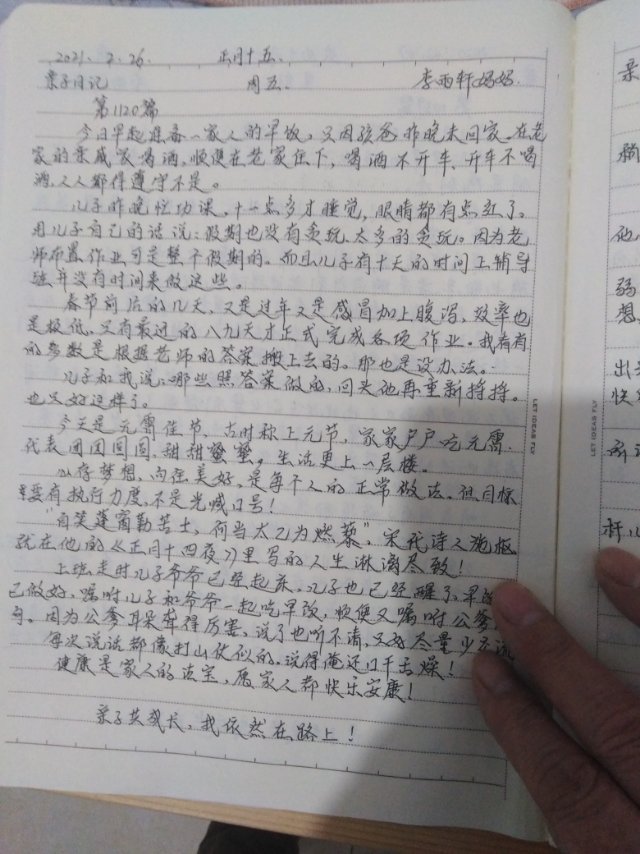 2021. 2. 26. 正月十五.
亲子日记 周五. 李雨轩妈妈.
第1120篇
今日早起准备一家人的早饭, 又因孩爸昨晚未回家. 在老
家的亲戚家喝酒, 顺便在老家住下, 喝酒不开车, 开车不喝
酒, 人人都得遵守不是。
儿子昨晚忙功课, 十一点多才睡觉, 眼睛都有点红了。
用儿子自己的话说: 假期也没有贪玩, 太多的贪玩。因为老
师布置作业可是整个假期的. 而且儿子有十天的时间上辅导
班并没有时间来做这些。
春节前后的几天, 又是过年又是感冒加上腹泻, 效率也
是极低, 只有最近的八九天才正式完成各项作业。我看有
的多数是根据老师的答案搬上去的。那也是没办法。
儿子和我说: 哪些照答案做的, 回头他再重新捋捋。
也只好这样了。
今天是元宵佳节, 古时称上元节, 家家户户吃元宵.
代表团团圆圆, 甜甜蜜蜜, 生活更上一层楼。
心存梦想, 向往美好, 是每个人的正常做法。但目标
要有执行力度, 不是光喊口号!
"自笑蓬窗勤苦士, 何当太乙为燃藜", 宋代诗人
就在他的《正月十四夜》里写的人生淋漓尽致!
上班走时儿子爷爷已经起床, 儿子也已经醒了, 早
已做好, 嘱咐儿子和爷爷一起吃早饭, 顺便又嘱咐公爹
句。因为公爹耳朵聋得厉害, 说了也听不清, 又 尽量少
每次说话都像打山仗似的, 说得俺还口干舌燥!
健康是家人的法宝, 愿家人都快乐安康!
亲子共成长, 我依然在路上!
亲
弱
想
出
快